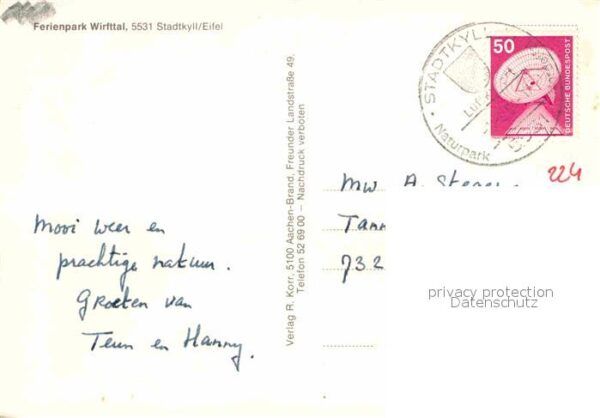 Ferienpark Wirfttal, 5531 Stadtkyll/Eifel
Mooi weer en
prachtige natuur.
Groeten van
Teun en Hanny.
Verlag R. Korr, 5100 Aachen-Brand, Freunder Landstraße 49,
Telefon 52 69 00 – Nachdruck verboten
STADTKYLL
Luft
Naturpark
50
DEUTSCHE BUNDESPOST
224
Mw A.
Tann
732
privacy protection
Datenschutz